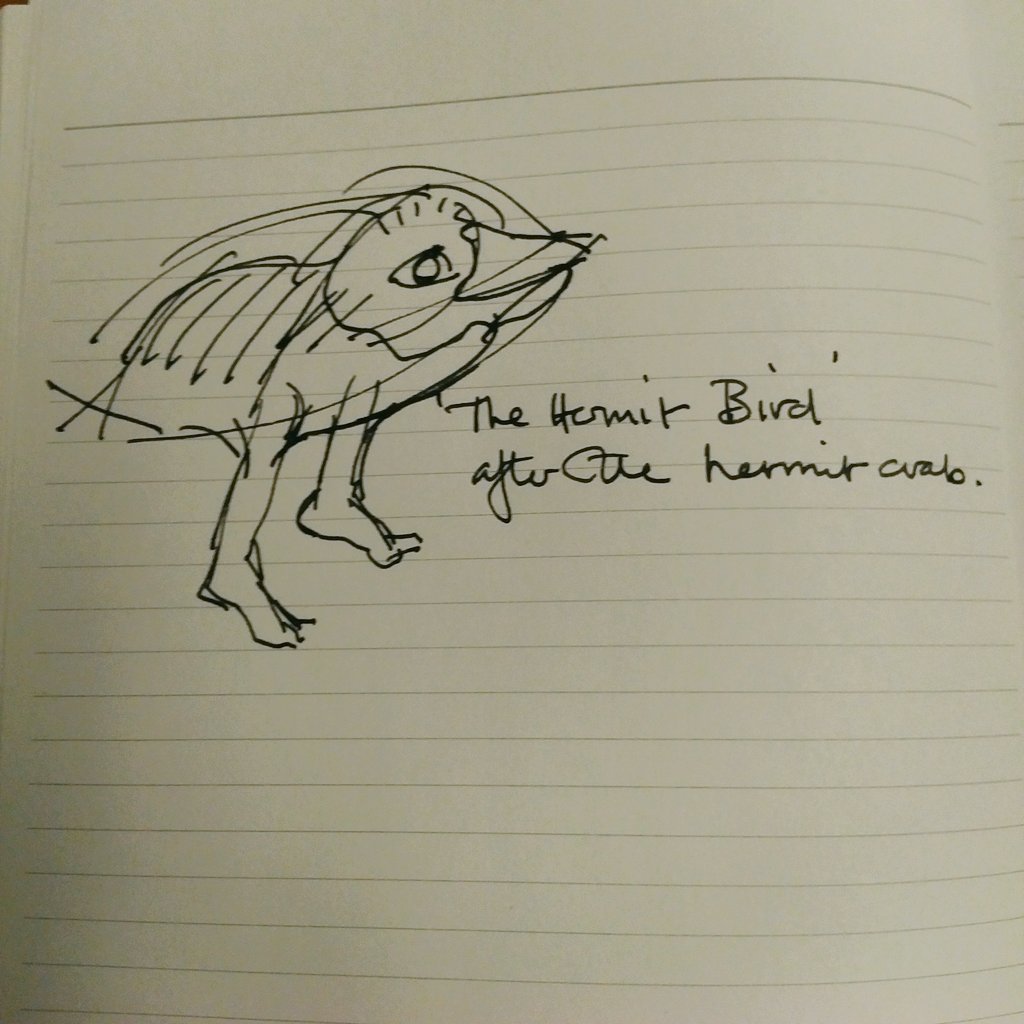 'The Hermit Bird'
after the hermit crab.